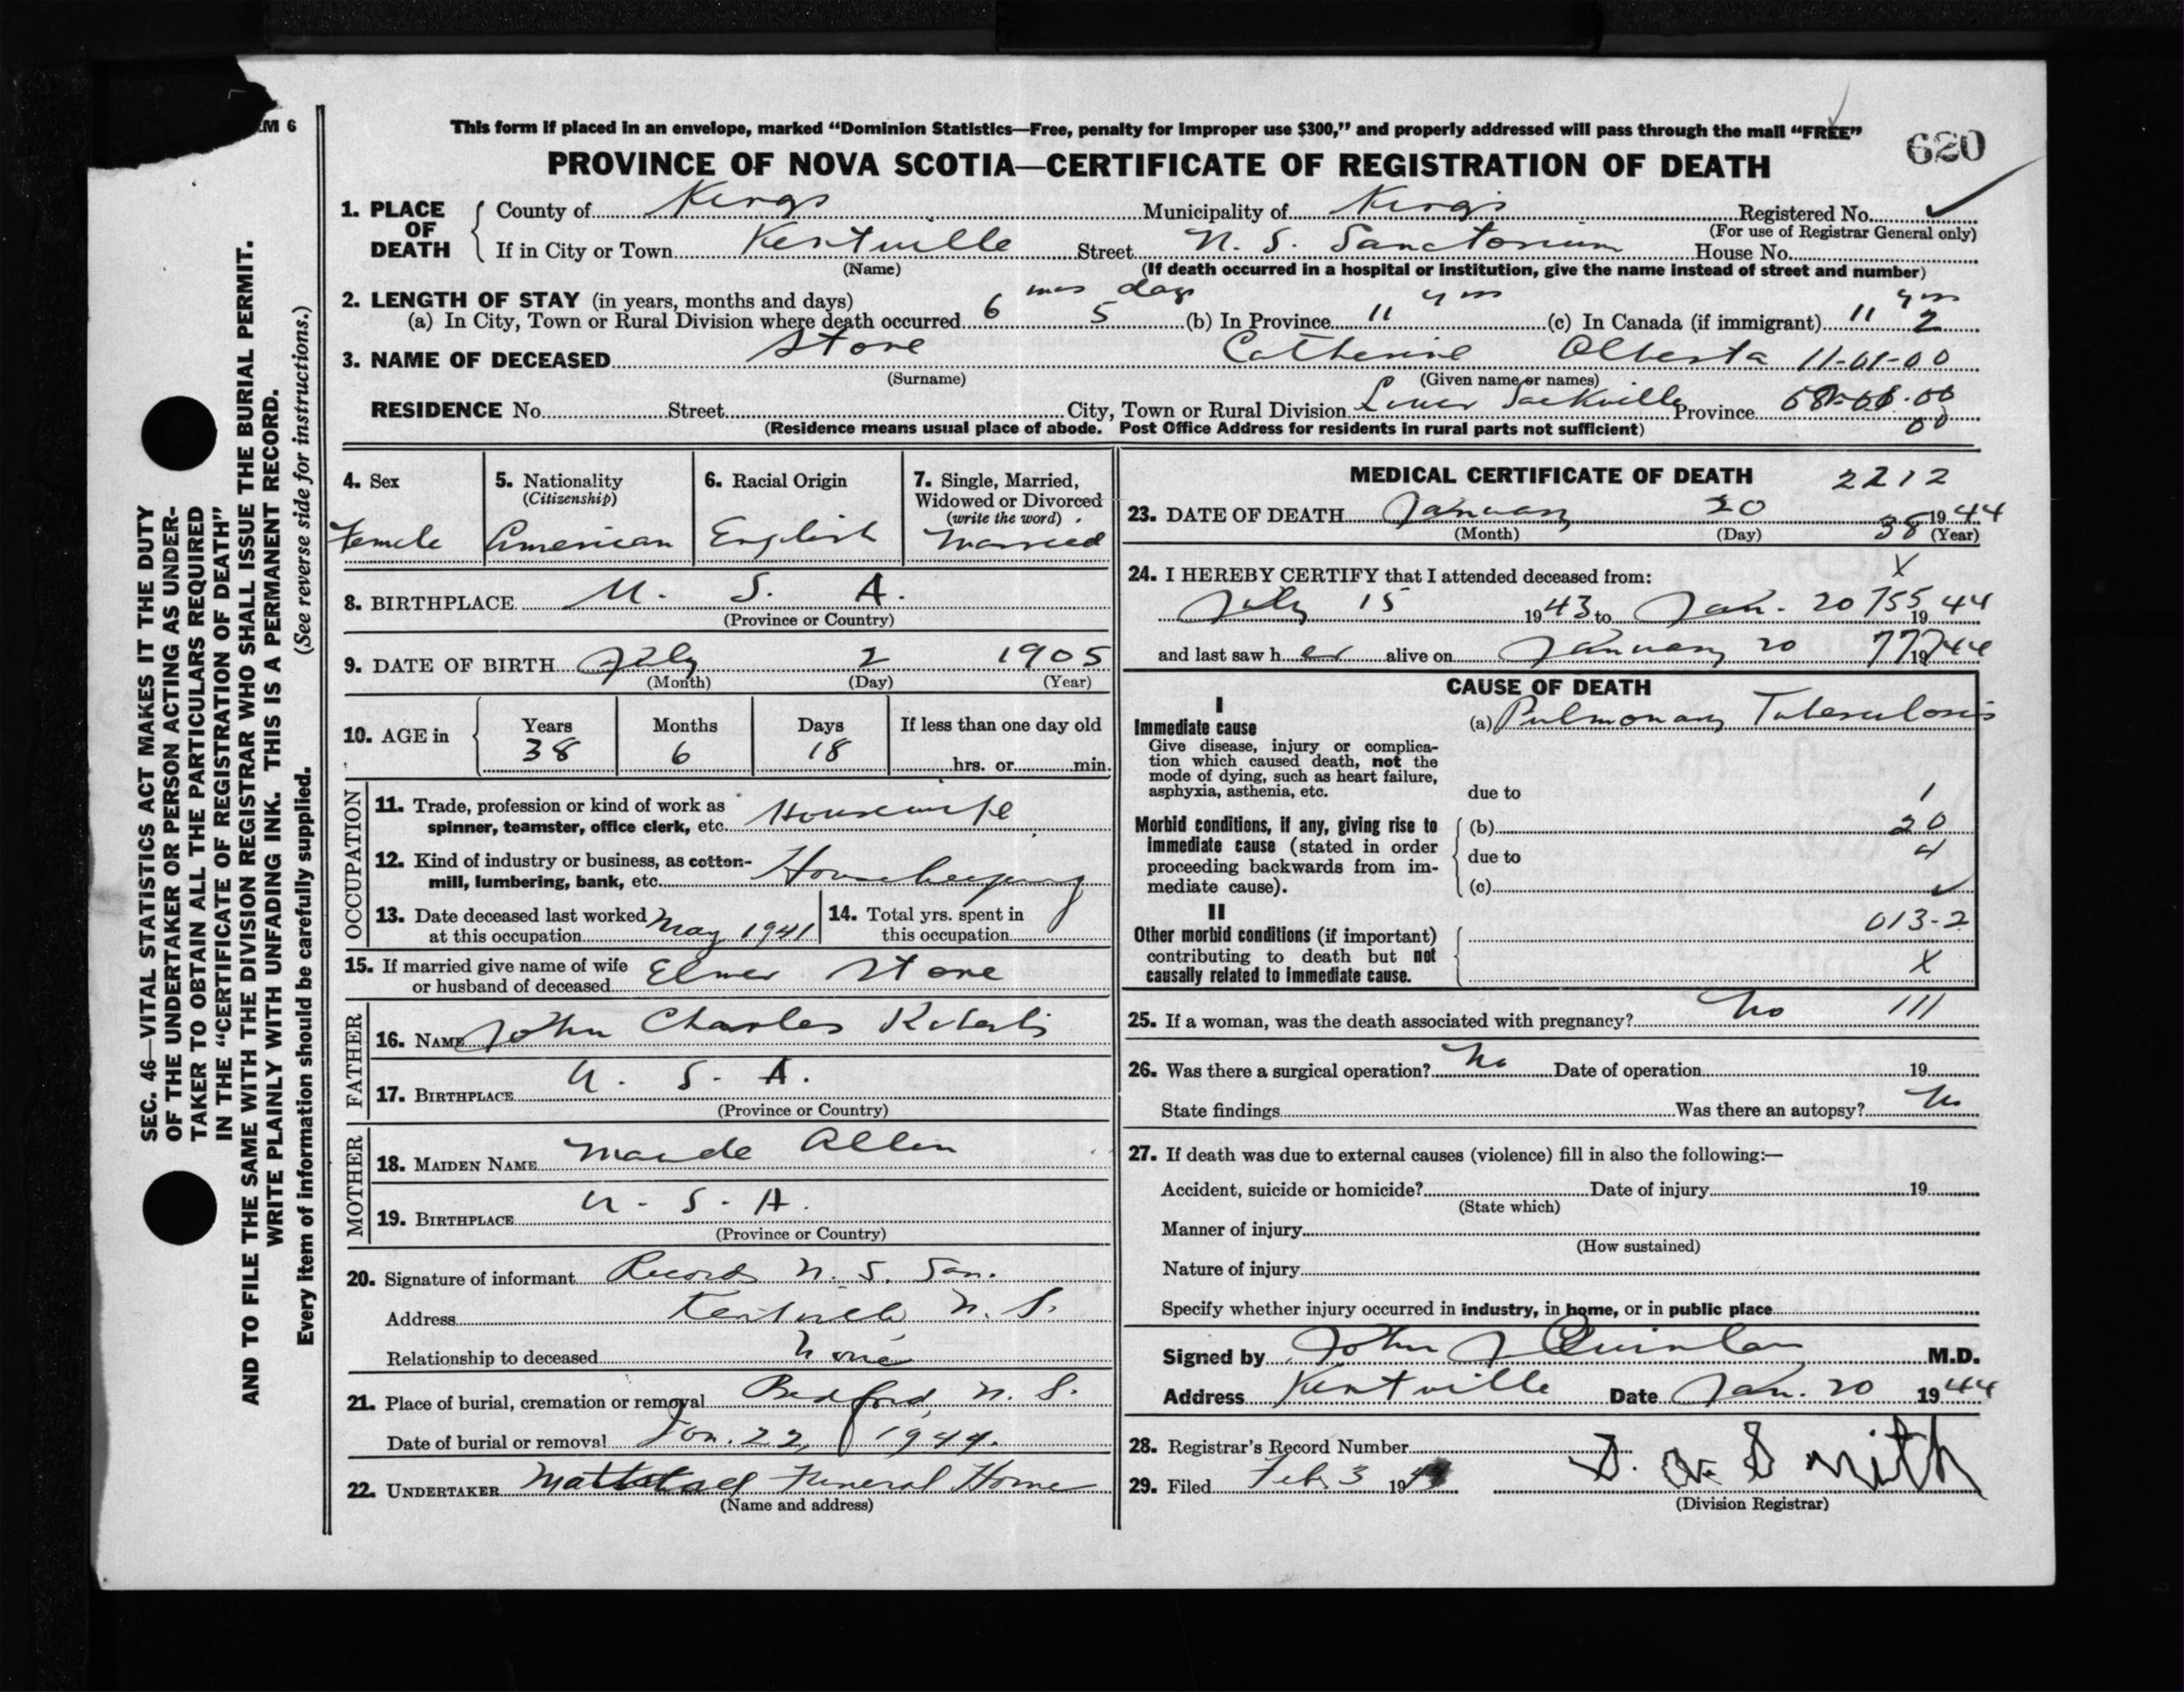 FORM 6
This form if placed in an envelope, marked "Dominion Statistics—Free, penalty for improper use $300," and properly addressed will pass through the mail "FREE"
620
PROVINCE OF NOVA SCOTIA—CERTIFICATE OF REGISTRATION OF DEATH
1. PLACE OF DEATH County of Kings Municipality of Kings Registered No.
(For use of Registrar General only)
If in City or Town Kentville Street N. S. Sanctorium House No.
(Name) (If death occurred in a hospital or institution, give the name instead of street and number)
2. LENGTH OF STAY (in years, months and days)
(a) In City, Town or Rural Division where death occurred 6 mos 5 days (b) In Province 11 yrs (c) In Canada (if immigrant) 11 yrs 2
3. NAME OF DECEASED Stone Catherine Alberta 11-01-00
(Surname) (Given name or names)
RESIDENCE No. Street City, Town or Rural Division Lower Sackville Province
(Residence means usual place of abode. Post Office Address for residents in rural parts not sufficient)
4. Sex
Female
5. Nationality
(Citizenship)
American
6. Racial Origin
English
7. Single, Married, Widowed or Divorced
(write the word)
Married
8. BIRTHPLACE U. S. A.
(Province or Country)
9. DATE OF BIRTH July 2 1905
(Month) (Day) (Year)
10. AGE in Years Months Days If less than one day old
38 6 18 hrs. or min.
OCCUPATION
11. Trade, profession or kind of work as
spinner, teamster, office clerk, etc. Housewife
12. Kind of industry or business, as cotton-
mill, lumbering, bank, etc. Housekeeping
13. Date deceased last worked
at this occupation May 1941
14. Total yrs. spent in
this occupation
15. If married give name of wife
or husband of deceased Elmer Stone
FATHER
16. NAME John Charles Roberts
17. BIRTHPLACE U. S. A.
(Province or Country)
MOTHER
18. MAIDEN NAME Maude Allen
19. BIRTHPLACE U. S. A.
(Province or Country)
20. Signature of informant Records N. S. San.
Address Kentville N. S.
Relationship to deceased None
21. Place of burial, cremation or removal Bedford, N. S.
Date of burial or removal Jan. 22, 1944.
22. UNDERTAKER Funeral Home
(Name and address)
MEDICAL CERTIFICATE OF DEATH 2212
23. DATE OF DEATH January 20 1944
(Month) (Day) 38 (Year)
24. I HEREBY CERTIFY that I attended deceased from: X
July 15 1943 to Jan. 20 755 1944
and last saw her alive on January 20 777 1944
CAUSE OF DEATH
I
Immediate cause (a) Pulmonary Tuberculosis
Give disease, injury or complica-
tion which caused death, not the
mode of dying, such as heart failure,
asphyxia, asthenia, etc. due to 1
Morbid conditions, if any, giving rise to (b) 20
immediate cause (stated in order due to 4
proceeding backwards from im-
mediate cause). (c)
II 013-2
Other morbid conditions (if important)
contributing to death but not
causally related to immediate cause. X
25. If a woman, was the death associated with pregnancy? No 111
26. Was there a surgical operation? No Date of operation 19
State findings Was there an autopsy? No
27. If death was due to external causes (violence) fill in also the following:—
Accident, suicide or homicide? Date of injury 19
(State which)
Manner of injury
(How sustained)
Nature of injury
Specify whether injury occurred in industry, in home, or in public place
Signed by John J Quinlan M.D.
Address Kentville Date Jan. 20 1944
28. Registrar's Record Number
29. Filed Feb 3 1944 Smith
(Division Registrar)
SEC. 46—VITAL STATISTICS ACT MAKES IT THE DUTY
OF THE UNDERTAKER OR PERSON ACTING AS UNDER-
TAKER TO OBTAIN ALL THE PARTICULARS REQUIRED
IN THE "CERTIFICATE OF REGISTRATION OF DEATH"
AND TO FILE THE SAME WITH THE DIVISION REGISTRAR WHO SHALL ISSUE THE BURIAL PERMIT.
WRITE PLAINLY WITH UNFADING INK. THIS IS A PERMANENT RECORD.
Every item of information should be carefully supplied. (See reverse side for instructions.)